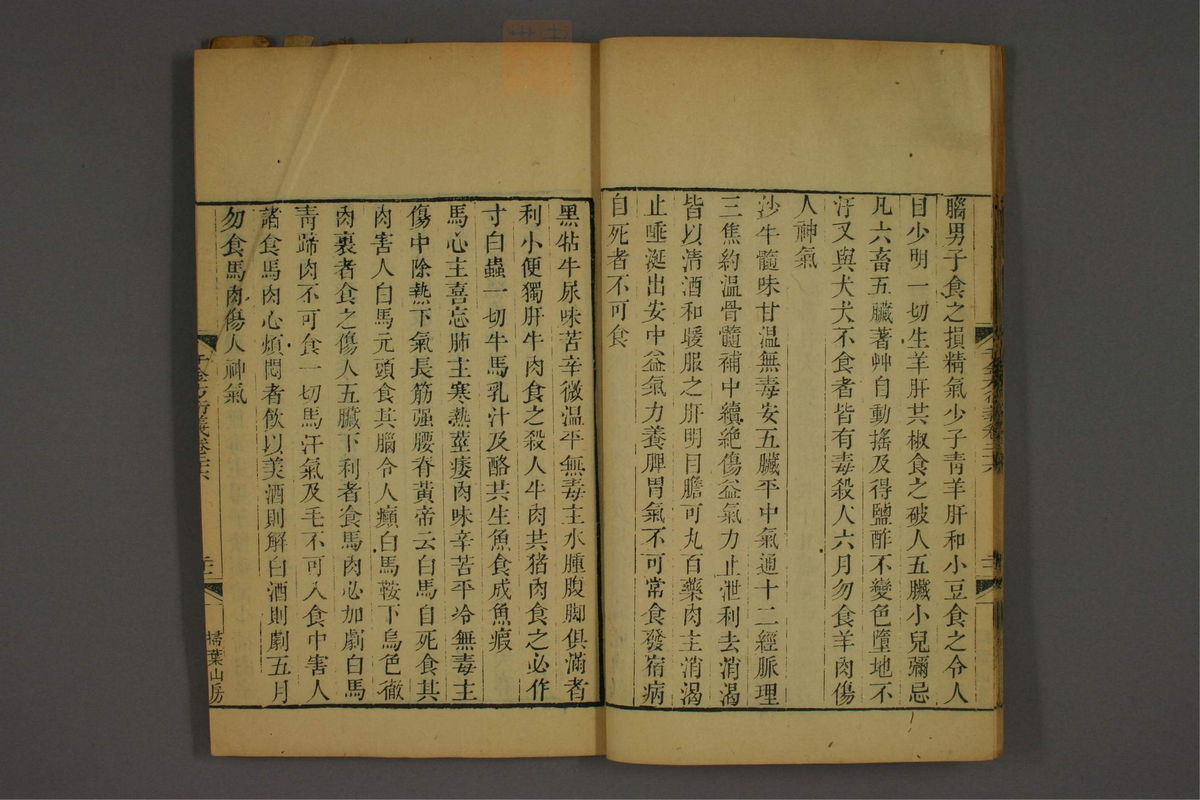 腦男子食之損精氣少子靑羊肝和小豆食之令人
目少明一切生羊肝共椒食之破人五臟小兒彌忌
凡六畜五臟著艸自動搖及得鹽酢不變色墮地不
汙又與犬犬不食者皆有毒殺人六月勿食羊肉傷
人神氣
沙牛髓味甘溫無毒安五臟平中氣通十二經脈理
三焦約溫骨髓補中續絕傷益氣力止泄利去消渴
皆以淸酒和暖服之肝明目膽可丸百藥肉主消渴
止唾涎出安中益氣力養脾胃氣不可常食發宿病
自死者不可食
千金方衍義卷二十六
黑牯牛尿味苦辛微溫平無毒主水腫腹脚俱滿者
利小便獨肝牛肉食之殺人牛肉共猪肉食之必作
寸白蟲一切牛馬乳汁及酪共生魚食成魚瘕
馬心主喜忘肺主寒熱莖痿肉味辛苦平冷無毒主
傷中除熱下氣長筋强腰脊黃帝云白馬自死食其
肉害人白馬元頭食其腦令人癲白馬鞍下烏色徹
肉裏者食之傷人五臟下利者食馬肉必加劇白馬
靑蹄肉不可食一切馬汗氣及毛不可入食中害人
諸食馬肉心煩悶者飮以美酒則解白酒則劇五月
勿食馬肉傷人神氣
千金方衍義卷二十六
掃葉山房